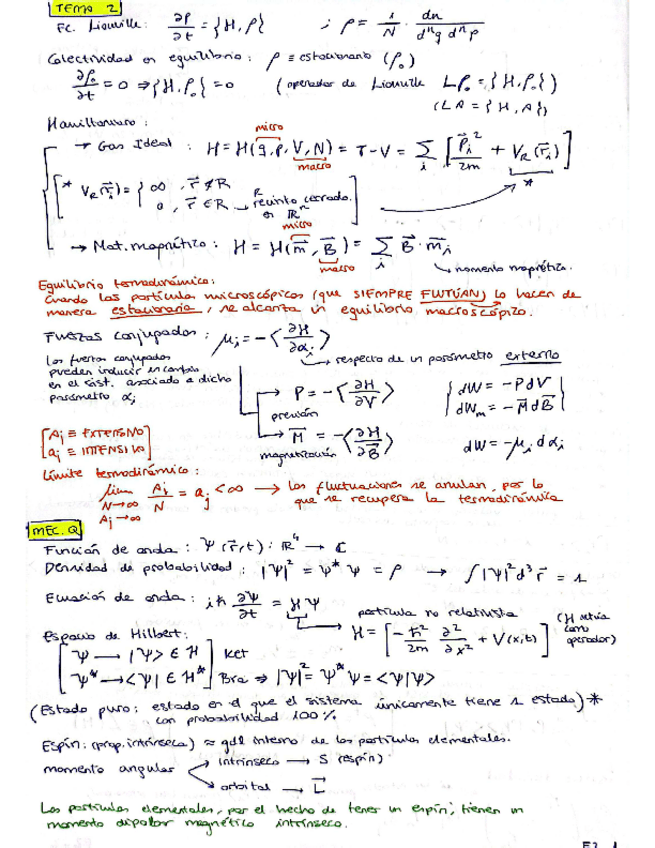 TEMA 2
Ec. Liouville: ∂ρ/∂t = {H, ρ} ; ρ = 1/N · dn/(dⁿq dⁿp)
Colectividad en equilibrio: ρ ≡ estacionario (ρ₀)
∂ρ₀/∂t = 0 ⇒ {H, ρ₀} = 0 (operador de Liouville Lρ₀ = {H, ρ₀})
(LA = {H, A})
Hamiltoniano:
micro
→ Gas Ideal: H = H(q, p, V, N) = T - V = Σᵢ [p⃗ᵢ²/2m + V_R(r⃗ᵢ)]
macro
* V_R(r⃗ᵢ) = { ∞, r⃗ ∉ R
0, r⃗ ∈ R → recinto cerrado en ℝⁿ
*
micro
→ Mat. magnético: H = H(m⃗, B⃗) = Σᵢ B⃗ · m⃗ᵢ
macro
momento magnético.
Equilibrio termodinámico:
Cuando las partículas microscópicas (que SIEMPRE FLUTÚAN) lo hacen de
manera estacionaria, se alcanza un equilibrio macroscópico.
Fuerzas conjugadas: μᵢ = -⟨∂H/∂αᵢ⟩
→ respecto de un parámetro externo
Las fuerzas conjugadas
pueden inducir un cambio
en el sist. asociado a dicho
parámetro αᵢ
→ P = -⟨∂H/∂V⟩
presión
→ M⃗ = -⟨∂H/∂B⃗⟩
magnetización
dW = -PdV
dWₘ = -M⃗dB⃗
dW = -μᵢ dαᵢ
[Aⱼ ≡ EXTENSIVO]
[aⱼ ≡ INTENSIVO]
Límite termodinámico:
lim Aⱼ/N = aⱼ < ∞ → las fluctuaciones se anulan, por lo
N→∞
Aⱼ→∞
que se recupera la termodinámica
MEC. Q
Función de onda: Ψ(r⃗,t): ℝ⁴ → ℂ
Densidad de probabilidad: |Ψ|² = Ψ*Ψ = ρ → ∫|Ψ|²d³r⃗ = 1
Ecuación de onda: iħ ∂Ψ/∂t = HΨ
partícula no relativista
H = [-ħ²/2m ∂²/∂x² + V(x,t)]
(H actúa
como
operador)
Espacio de Hilbert:
Ψ → |Ψ⟩ ∈ H Ket
Ψ* → ⟨Ψ| ∈ H* Bra ⇒ |Ψ|² = Ψ*Ψ = ⟨Ψ|Ψ⟩
(Estado puro: estado en el que el sistema únicamente tiene 1 estado) *
con probabilidad 100%.
Espín: (prop. intrínseca) ≈ gdl interno de las partículas elementales.
momento angular
intrínseco → S (espín)
orbital → L⃗
Las partículas elementales, por el hecho de tener un espín, tienen un
momento dipolar magnético intrínseco.